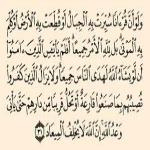 وَلَوْ أَنَّ قُرْءَانًا سُيِّرَتْ بِهِ الْجِبَالُ أَوْ قُطِّعَتْ بِهِ الْأَرْضُ أَوْ كُلِّمَ
بِهِ الْمَوْتَىٰ بَل لِّلَّهِ الْأَمْرُ جَمِيعًا أَفَلَمْ يَايْـَٔسِ الَّذِينَ ءَامَنُوا
أَن لَّوْ يَشَاءُ اللَّهُ لَهَدَى النَّاسَ جَمِيعًا وَلَا يَزَالُ الَّذِينَ كَفَرُوا
تُصِيبُهُم بِمَا صَنَعُوا قَارِعَةٌ أَوْ تَحُلُّ قَرِيبًا مِّن دَارِهِمْ حَتَّىٰ يَأْتِيَ
وَعْدُ اللَّهِ إِنَّ اللَّهَ لَا يُخْلِفُ الْمِيعَادَ ٣١